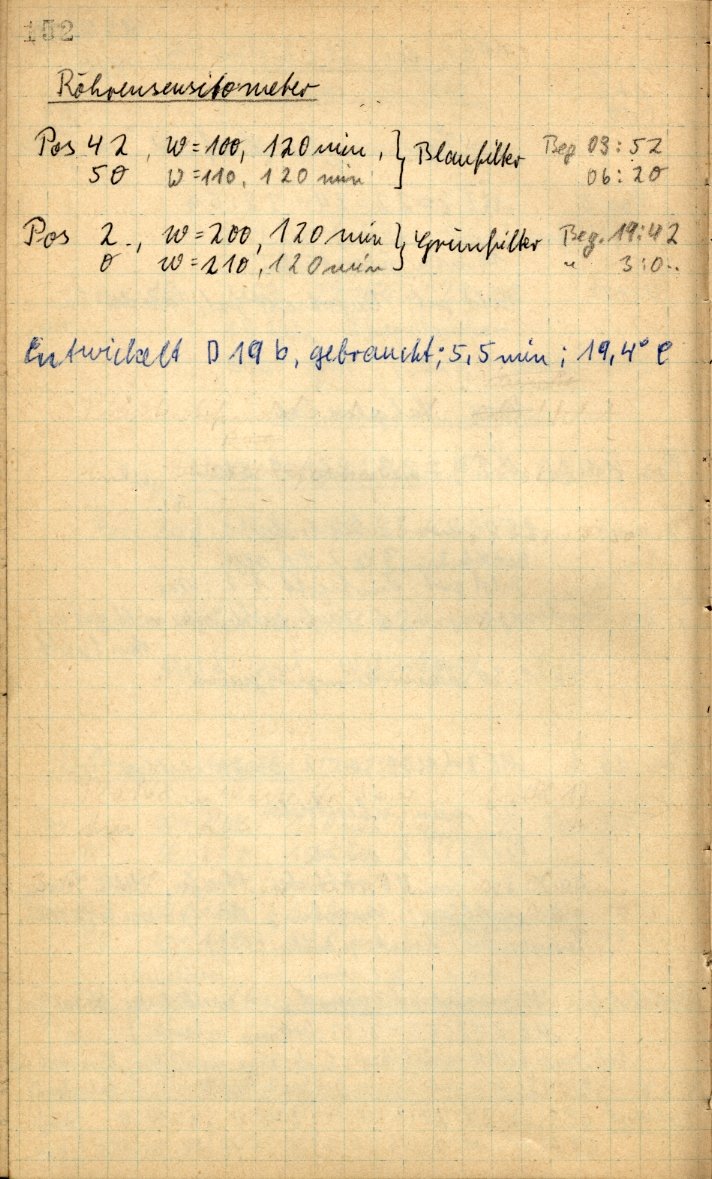 152
Röhrensensitometer
Pos 42, w=100, 120 min, } Blaufilter Beg 03:52
50 w=110, 120 min 06:20
Pos 2., w=200, 120 min } Grünfilter Beg. 19:42
0 w=210, 120 min " 3:0..
Entwickelt D 19 b, gebraucht; 5,5 min; 19,4° C